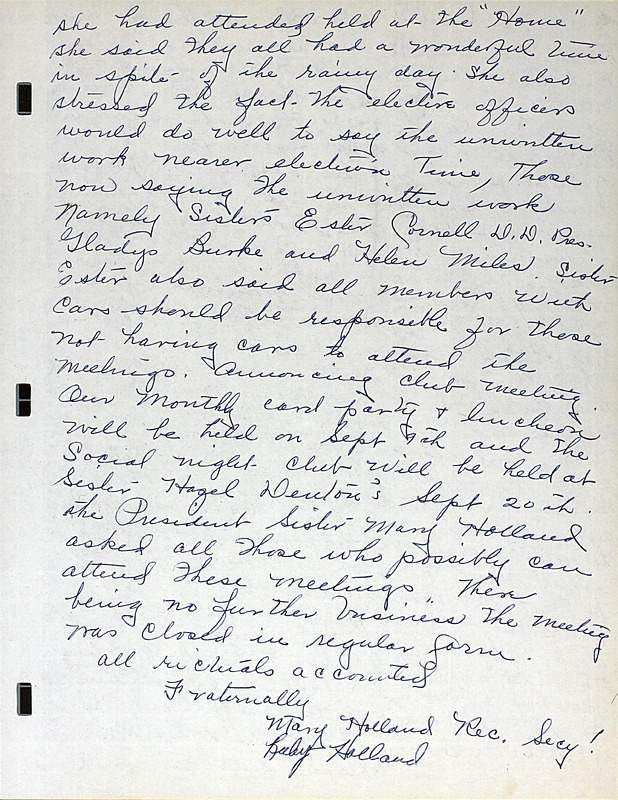 she had attended held at the "Home"
she said they all had a wonderful time
in spite of the rainy day. She also
stressed the fact the elective officers
would do well to say the unwritten
work nearer election Time, Those
now saying the unwritten work
Namely Sisters Ester Cornell D.D. Pres.
Gladys Burke and Helen Miles. Sister
Ester also said all members with
Cars should be responsible for those
not having cars to attend the
meetings. Announcing club meeting.
Our Monthly card party & luncheon
will be held on Sept 9th and the
Social night club will be held at
Sister Hazel Denton's Sept 20th.
the President Sister Mary Holland
asked all those who possibly can
attend these meetings There
being no further business the meeting
was closed in regular form.
all rituals accounted
Fraternally
Mary Holland Rec. Secy!
Holland